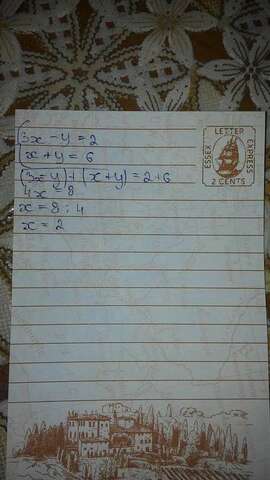 3x - y = 2
x + y = 6
(3x-y)+(x+y)=2+6
4x = 8
x = 8 : 4
x = 2
LETTER
ESSEX
EXPRESS
2 CENTS